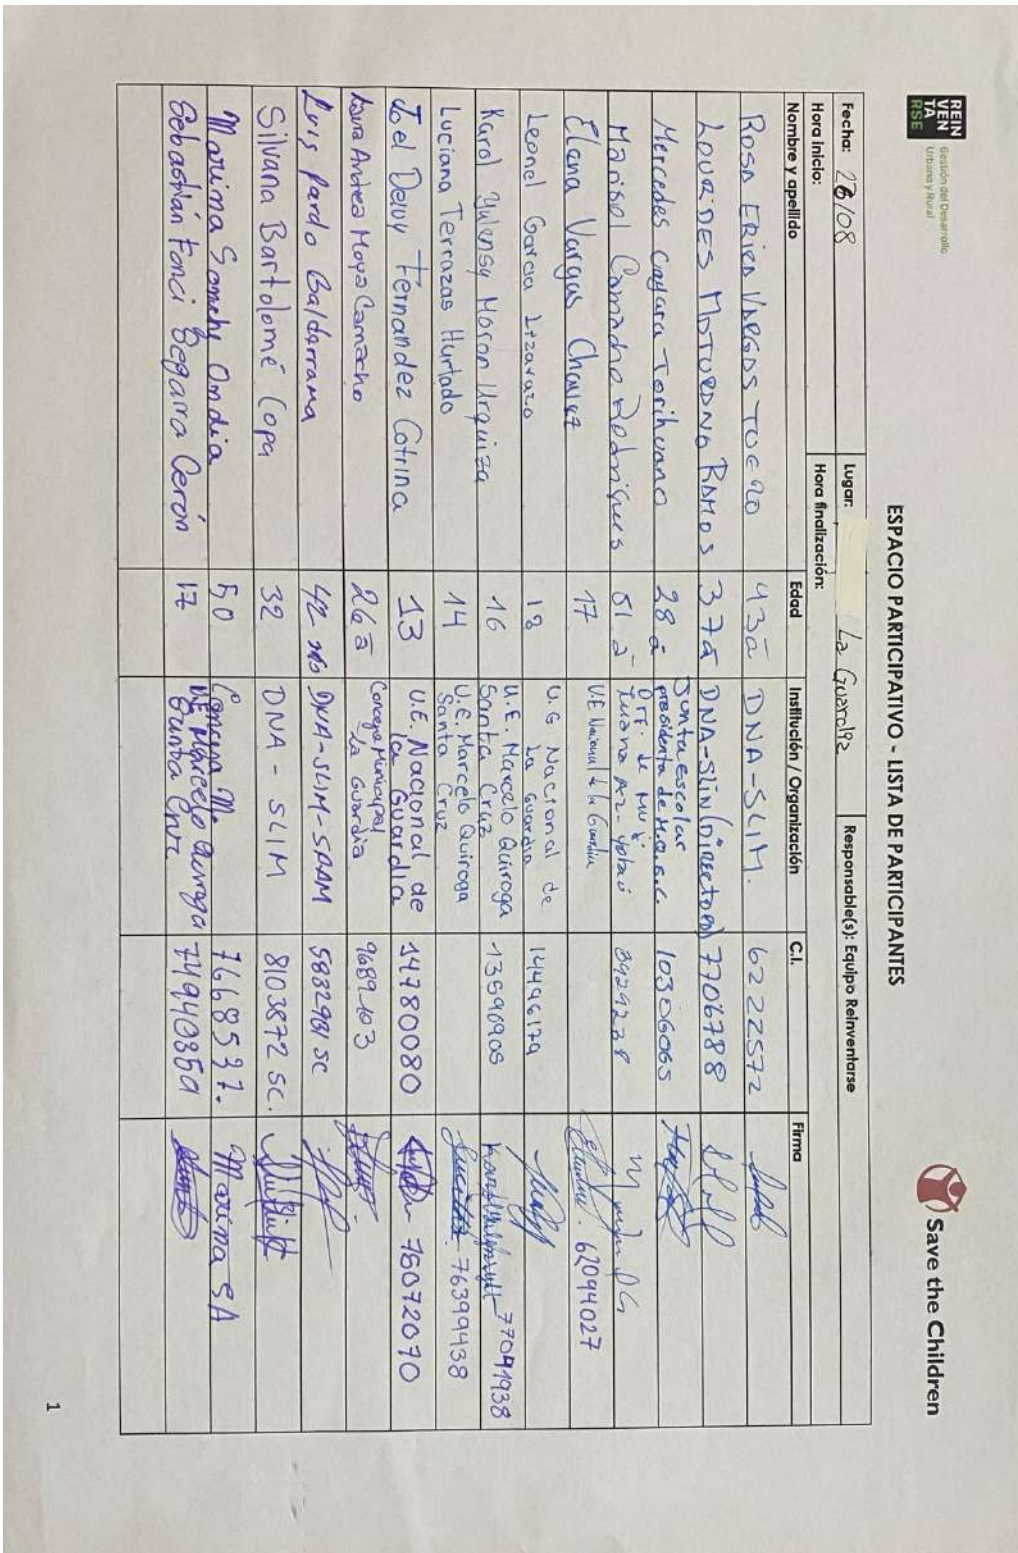 REIN
VEN
TA
RSE
Gestión del Desarrollo
Urbano y Rural
Save the Children
ESPACIO PARTICIPATIVO - LISTA DE PARTICIPANTES
Fecha: 26/08 Lugar: La Guardia Responsable(s): Equipo Reinventarse
Hora inicio: Hora finalización:
Nombre y apellido Edad Institución / Organización C.I. Firma
Rosa VARGAS 43a DNA-SLIM. 6222572
LOURDES RAMOS 37a DNA-SLIM 7706788
Mercedes Cayara Torihuano 28a Junta Escolar
presidenta de 10306065
Marisol Camacho Rodrigues 51 a 3929238
Elana Vargas Chavez 17 U.E Nacional de la Guardia 62094027
Leonel Garcia Lizarazo 18 U.G Nacional de
La Guardia 14496179
Karol Yulensy Moron Urquiza 16 U.E. Marcelo Quiroga
Santa Cruz 13590905 77041938
Luciana Terrazas Hurtado 14 U.E. Marcelo Quiroga
Santa Cruz 76399438
Joel Deivy Fernandez Cotrina 13 U.E. Nacional de
la Guardia 14780080 76072070
Laura Andrea Moya Camacho 26a Concejo Municipal
La Guardia 9689103
Luis Pardo Baldarrama 42 DNA-SLIM- 5882981 SC
Silvana Bartolomé Copa 32 DNA - SLIM 8103872 SC.
Marina 50 7668537. Marina SA
Sebastián Begarra Cerón 17 U.E Marcelo Quiroga
Santa Cruz
1